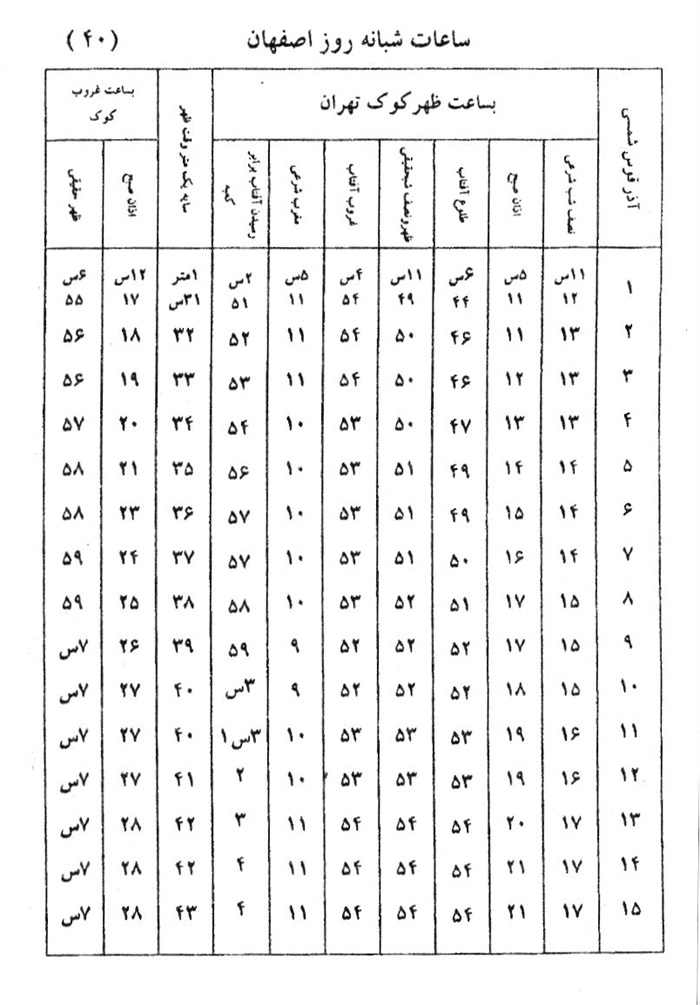 ساعات شبانه روز اصفهان (۴۰)
بساعت ظهر کوک تهران
بساعت غروب کوک
آذر قوس شمسی
نصف شب شرعی
اذان صبح
طلوع آفتاب
ظهر و نصف شبحقیقی
غروب آفتاب
مغرب شرعی
رسیدن آفتاب برابر کعبه
سایه یک متر وقت ظهر
اذان صبح
ظهر حقیقی
۱ ۱۱س ۵س ۶س ۱۱س ۴س ۵س ۲س ۱متر ۱۲س ۶س
۱۲ ۱۱ ۴۴ ۴۹ ۵۴ ۱۱ ۵۱ ۳۱س ۱۷ ۵۵
۲ ۱۳ ۱۱ ۴۶ ۵۰ ۵۴ ۱۱ ۵۲ ۳۲ ۱۸ ۵۶
۳ ۱۳ ۱۲ ۴۶ ۵۰ ۵۴ ۱۱ ۵۳ ۳۳ ۱۹ ۵۶
۴ ۱۳ ۱۳ ۴۷ ۵۰ ۵۳ ۱۰ ۵۴ ۳۴ ۲۰ ۵۷
۵ ۱۴ ۱۴ ۴۹ ۵۱ ۵۳ ۱۰ ۵۶ ۳۵ ۲۱ ۵۸
۶ ۱۴ ۱۵ ۴۹ ۵۱ ۵۳ ۱۰ ۵۷ ۳۶ ۲۳ ۵۸
۷ ۱۴ ۱۶ ۵۰ ۵۱ ۵۳ ۱۰ ۵۷ ۳۷ ۲۴ ۵۹
۸ ۱۵ ۱۷ ۵۱ ۵۲ ۵۳ ۱۰ ۵۸ ۳۸ ۲۵ ۵۹
۹ ۱۵ ۱۷ ۵۲ ۵۲ ۵۲ ۹ ۵۹ ۳۹ ۲۶ ۷س
۱۰ ۱۵ ۱۸ ۵۲ ۵۲ ۵۲ ۹ ۳س ۴۰ ۲۷ ۷س
۱۱ ۱۶ ۱۹ ۵۳ ۵۳ ۵۳ ۱۰ ۳س۱ ۴۰ ۲۷ ۷س
۱۲ ۱۶ ۱۹ ۵۳ ۵۳ ۵۳ ۱۰ ۲ ۴۱ ۲۷ ۷س
۱۳ ۱۷ ۲۰ ۵۴ ۵۴ ۵۴ ۱۱ ۳ ۴۲ ۲۸ ۷س
۱۴ ۱۷ ۲۱ ۵۴ ۵۴ ۵۴ ۱۱ ۴ ۴۲ ۲۸ ۷س
۱۵ ۱۷ ۲۱ ۵۴ ۵۴ ۵۴ ۱۱ ۴ ۴۳ ۲۸ ۷س